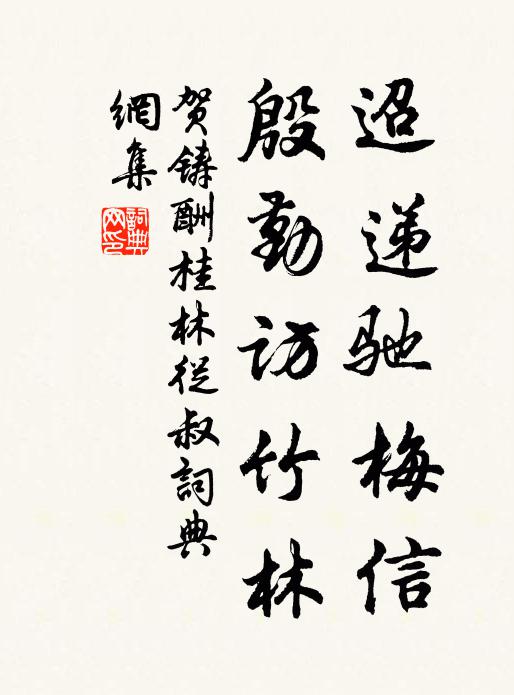 迢递馳梅信
殷勤訪竹林
贺鑄酬桂林從叔詞典
網集
詞典
网印